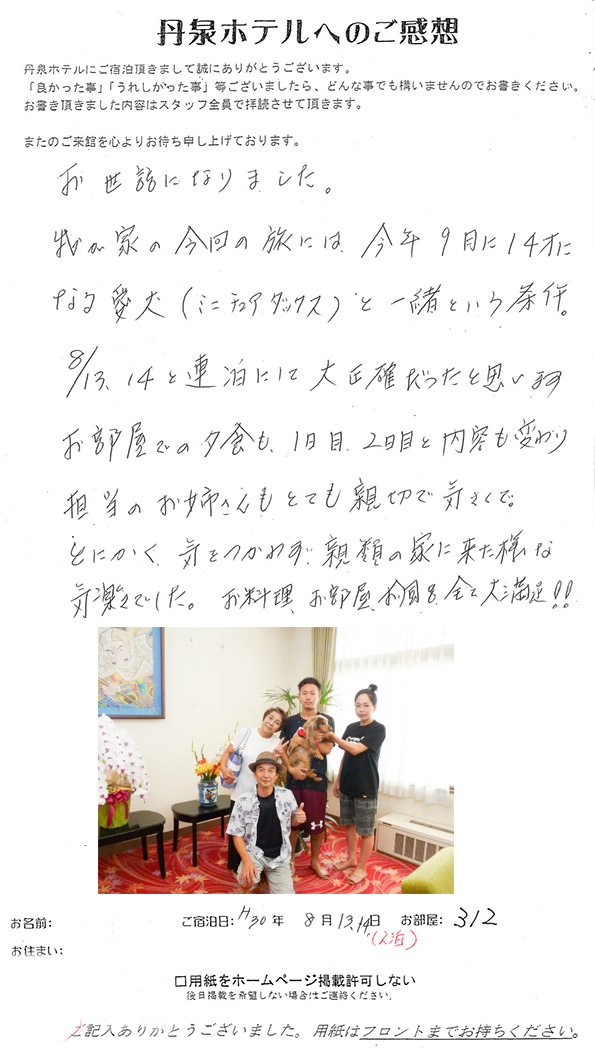 丹泉ホテルへのご感想
丹泉ホテルにご宿泊頂きまして誠にありがとうございます。
「良かった事」「うれしかった事」等ございましたら、どんな事でも構いませんのでお書きください。
お書き頂きました内容はスタッフ全員で拝読させて頂きます。
またのご来館を心よりお待ち申し上げております。
お世話になりました。
我が家の今回の旅には、今年9月に14才に
なる愛犬(ミニチュアダックス)と一緒という条件。
8/13、14と連泊にして大正確だったと思います
お部屋での夕食も、1日目、2日目と内容も変わり
担当のお姉さんもとても親切で気さくで。
とにかく、気をつかわず、親類の家に来た様な
気楽さでした。お料理、お部屋、お風呂、全て大満足!!
お名前:
ご宿泊日: H30年 8月13,14日 お部屋: 312
(2泊)
お住まい:
□用紙をホームページ掲載許可しない
後日掲載を希望しない場合はご連絡ください。
ご記入ありがとうございました。用紙はフロントまでお持ちください。